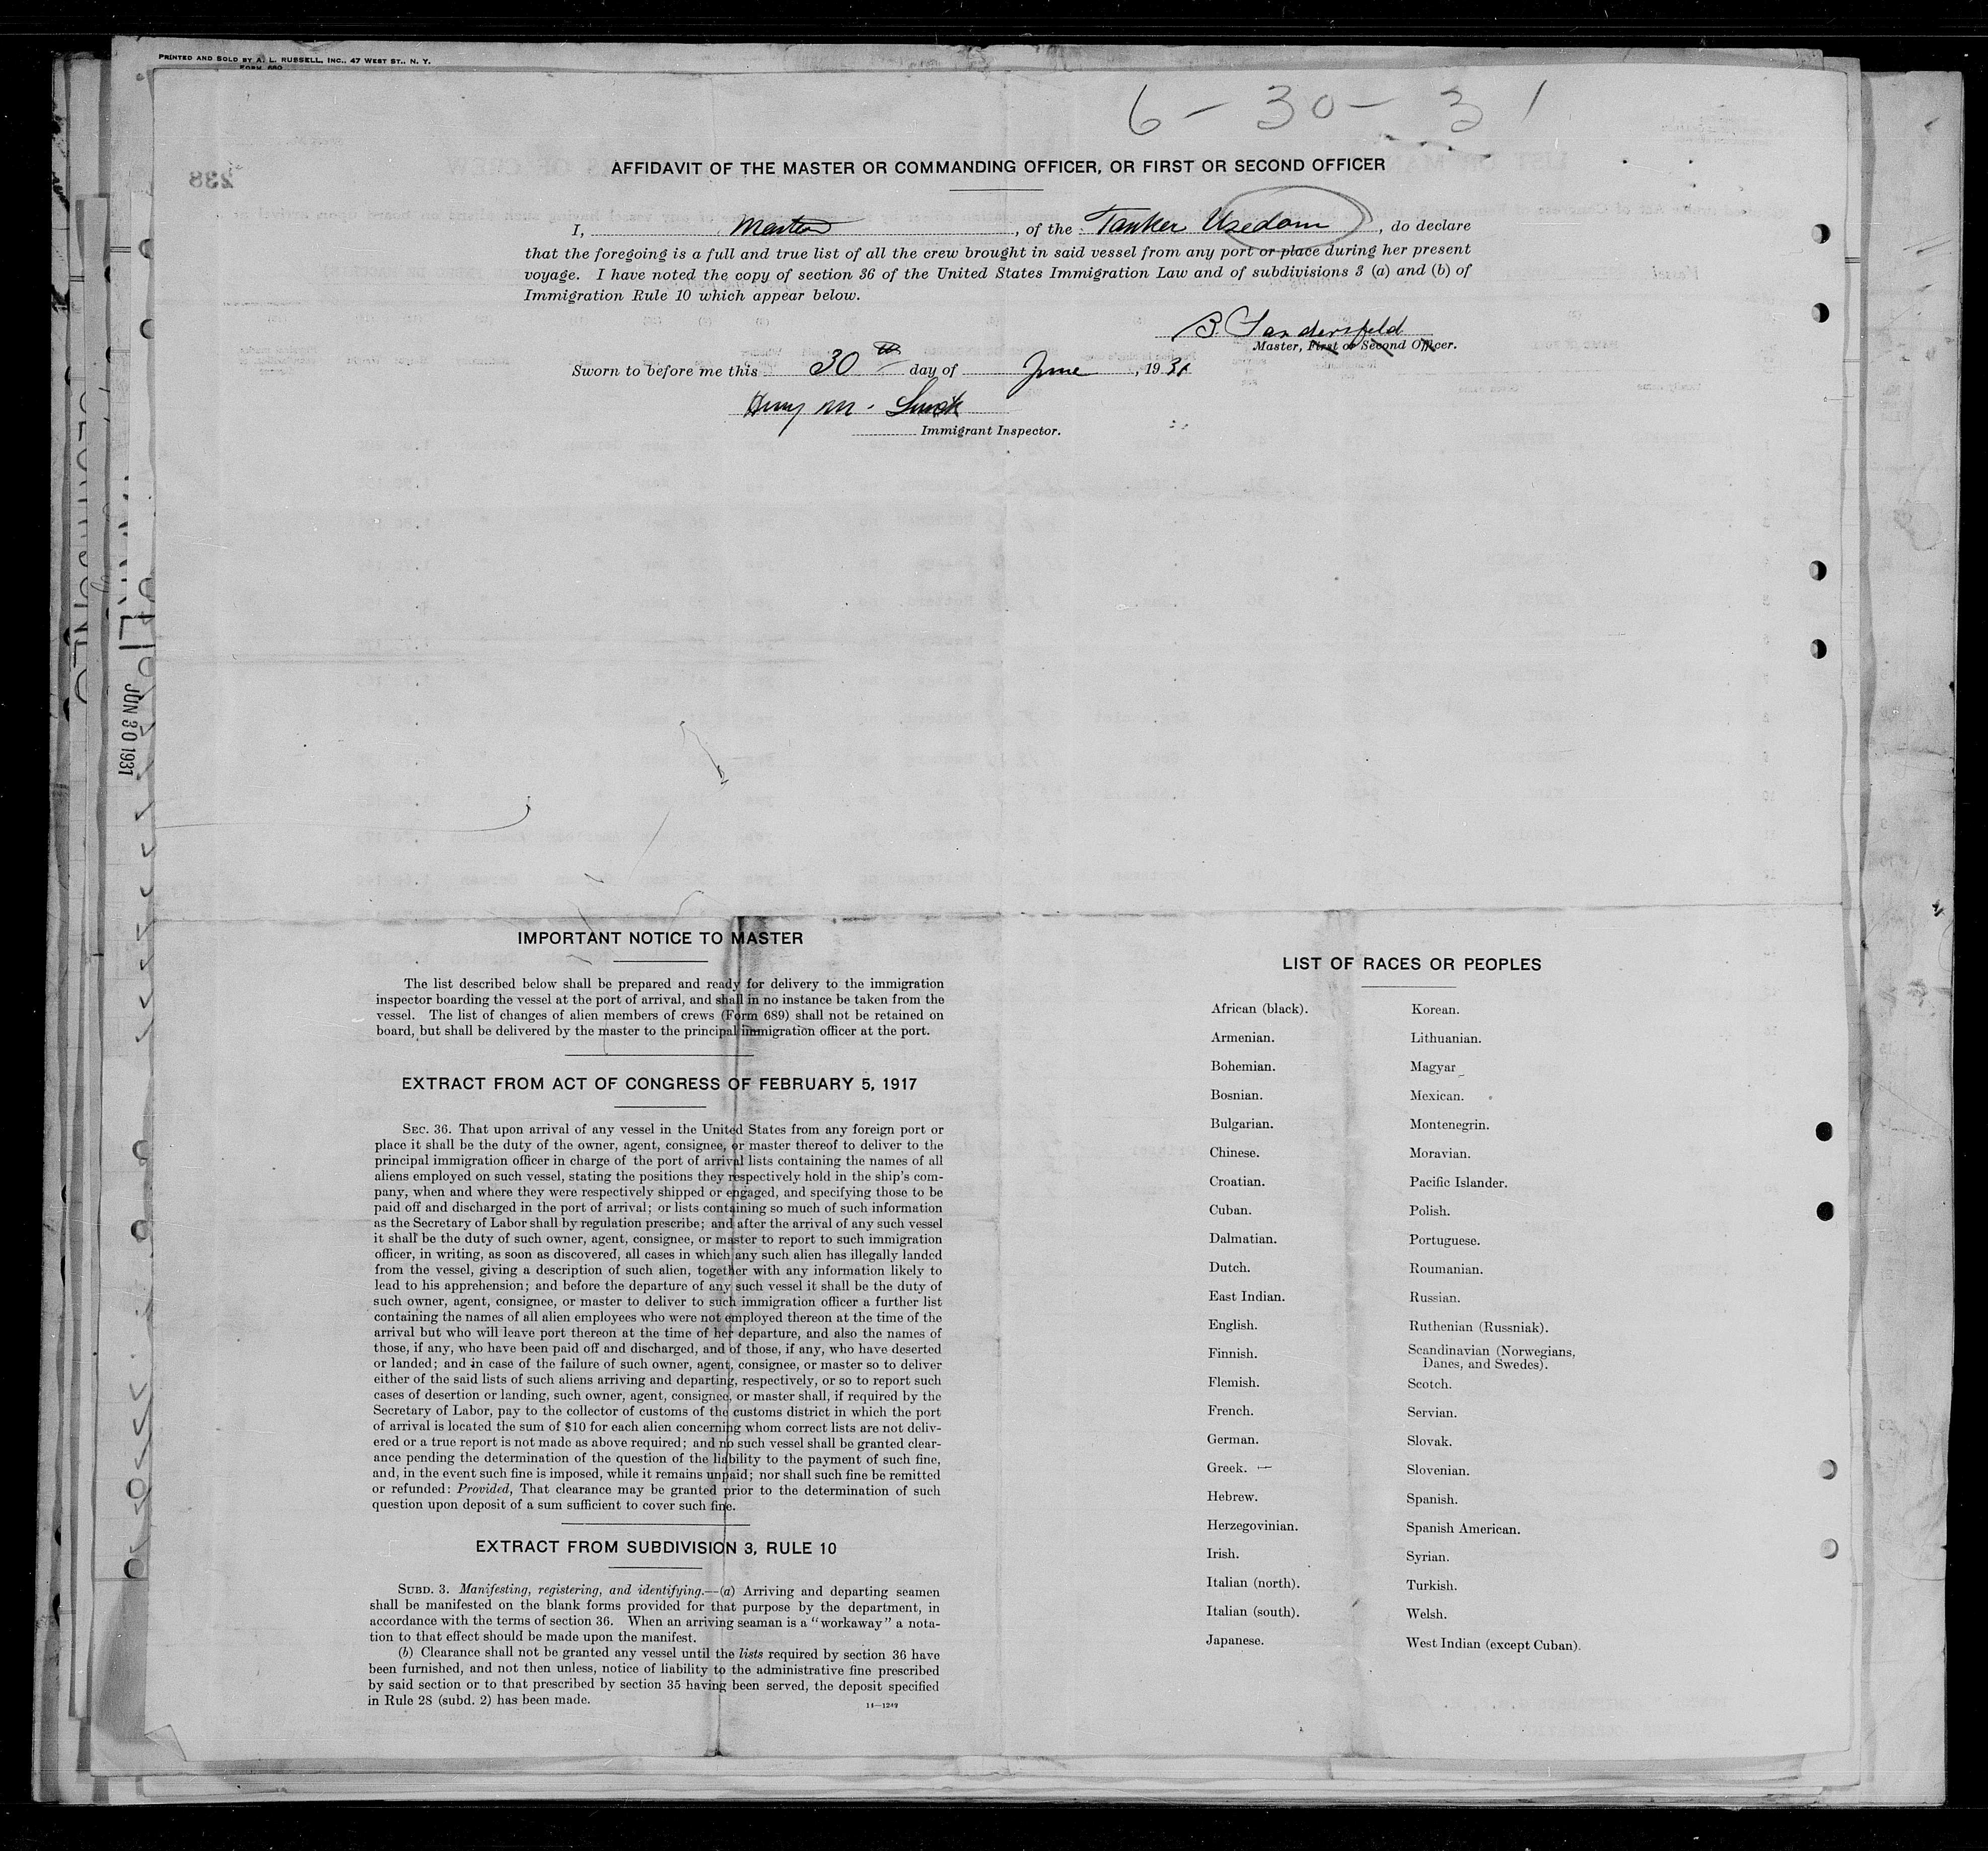 PRINTED AND SOLD BY A. L. RUSSELL, INC., 47 WEST ST., N. Y.
FORM 680
6 - 30 - 31
AFFIDAVIT OF THE MASTER OR COMMANDING OFFICER, OR FIRST OR SECOND OFFICER
238
I, Master, of the Tanker Usedom, do declare
that the foregoing is a full and true list of all the crew brought in said vessel from any port or place during her present
voyage. I have noted the copy of section 36 of the United States Immigration Law and of subdivisions 3 (a) and (b) of
Immigration Rule 10 which appear below.
B. Sandersfeld
Master, First or Second Officer.
Sworn to before me this 30th day of June, 1931
Henry M.
Immigrant Inspector.
JUN 30 1931
IMPORTANT NOTICE TO MASTER
The list described below shall be prepared and ready for delivery to the immigration
inspector boarding the vessel at the port of arrival, and shall in no instance be taken from the
vessel. The list of changes of alien members of crews (Form 689) shall not be retained on
board, but shall be delivered by the master to the principal immigration officer at the port.
EXTRACT FROM ACT OF CONGRESS OF FEBRUARY 5, 1917
SEC. 36. That upon arrival of any vessel in the United States from any foreign port or
place it shall be the duty of the owner, agent, consignee, or master thereof to deliver to the
principal immigration officer in charge of the port of arrival lists containing the names of all
aliens employed on such vessel, stating the positions they respectively hold in the ship's com-
pany, when and where they were respectively shipped or engaged, and specifying those to be
paid off and discharged in the port of arrival; or lists containing so much of such information
as the Secretary of Labor shall by regulation prescribe; and after the arrival of any such vessel
it shall be the duty of such owner, agent, consignee, or master to report to such immigration
officer, in writing, as soon as discovered, all cases in which any such alien has illegally landed
from the vessel, giving a description of such alien, together with any information likely to
lead to his apprehension; and before the departure of any such vessel it shall be the duty of
such owner, agent, consignee, or master to deliver to such immigration officer a further list
containing the names of all alien employees who were not employed thereon at the time of the
arrival but who will leave port thereon at the time of her departure, and also the names of
those, if any, who have been paid off and discharged, and of those, if any, who have deserted
or landed; and in case of the failure of such owner, agent, consignee, or master so to deliver
either of the said lists of such aliens arriving and departing, respectively, or so to report such
cases of desertion or landing, such owner, agent, consignee, or master shall, if required by the
Secretary of Labor, pay to the collector of customs of the customs district in which the port
of arrival is located the sum of $10 for each alien concerning whom correct lists are not deliv-
ered or a true report is not made as above required; and no such vessel shall be granted clear-
ance pending the determination of the question of the liability to the payment of such fine,
and, in the event such fine is imposed, while it remains unpaid; nor shall such fine be remitted
or refunded: Provided, That clearance may be granted prior to the determination of such
question upon deposit of a sum sufficient to cover such fine.
EXTRACT FROM SUBDIVISION 3, RULE 10
SUBD. 3. Manifesting, registering, and identifying.—(a) Arriving and departing seamen
shall be manifested on the blank forms provided for that purpose by the department, in
accordance with the terms of section 36. When an arriving seaman is a "workaway" a nota-
tion to that effect should be made upon the manifest.
(b) Clearance shall not be granted any vessel until the lists required by section 36 have
been furnished, and not then unless, notice of liability to the administrative fine prescribed
by said section or to that prescribed by section 35 having been served, the deposit specified
in Rule 28 (subd. 2) has been made.
14—1249
LIST OF RACES OR PEOPLES
African (black).
Armenian.
Bohemian.
Bosnian.
Bulgarian.
Chinese.
Croatian.
Cuban.
Dalmatian.
Dutch.
East Indian.
English.
Finnish.
Flemish.
French.
German.
Greek.
Hebrew.
Herzegovinian.
Irish.
Italian (north).
Italian (south).
Japanese.
Korean.
Lithuanian.
Magyar
Mexican.
Montenegrin.
Moravian.
Pacific Islander.
Polish.
Portuguese.
Roumanian.
Russian.
Ruthenian (Russniak).
Scandinavian (Norwegians,
Danes, and Swedes).
Scotch.
Servian.
Slovak.
Slovenian.
Spanish.
Spanish American.
Syrian.
Turkish.
Welsh.
West Indian (except Cuban).